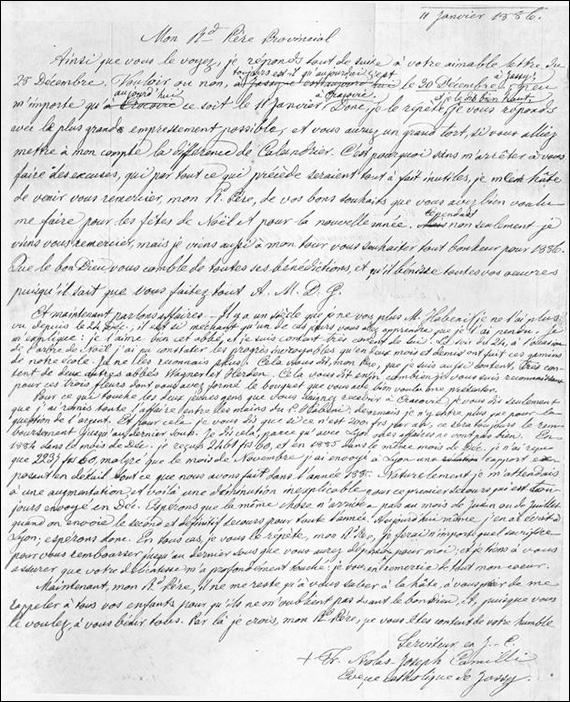 11 Janvier 1886.
Mon Rd Père Provincial
Ainsi que vous le voyez, je réponds tout de suite à votre aimable lettre du
25 Décembre. Vouloir ou non, toujours est-il qu'aujourd'hui c'est le 30 Décembre à Jassy;
m'importe qu'à Cracovie ce soit le 11 Janvier! Donc, je le répète, je vous réponds
avec le plus grand empressement possible, et vous auriez un grand tort, si vous alliez
mettre à mon compte la différence de Calendrier. C'est pourquoi sans m'arrêter à vous
faire des excuses, qui par tout ce qui précède seraient tout à fait inutiles, je me hâte
de venir vous remercier, mon R. Père, de vos bons souhaits que vous avez bien voulu
me faire pour les fêtes de Noël et pour la nouvelle année. Cependant non seulement je
viens vous remercier, mais je viens aussi à mon tour vous souhaiter tout bonheur pour 1886.
Que le bon Dieu vous comble de toutes ses bénédictions, et qu'il bénisse toutes vos œuvres
puisqu'il sait que vous faites tout A. M. D. G.
Et maintenant parlons affaires. Il y a un siècle que je ne vois plus M. Habeni; je ne l'ai plus
vu depuis le 24 Déc.; il est si méchant qu'un de ces jours vous allez apprendre que je l'ai pendu. Je
m'explique: je l'aime bien cet abbé, et je suis content très content de lui. Le soir du 24, à l'occasion
de l'arbre de Noël, j'ai pu constater les progrès incroyables qu'en deux mois et demi ont fait ces gamins
de notre Institut. Je ne les reconnais plus. Cela vous dit, mon Père, que je suis aussi content, très con-
tent de deux autres abbés Wagner et Herden. Cela vous dit enfin combien je vous suis reconnaissant
pour ces trois fleurs dont vous avez formé le bouquet que vous avez bien voulu
Pour ce que touche les deux jeunes gens que vous daignez recevoir à Cracovie, je vous dis seulement
que j'ai remis toute l'affaire entre les mains du P. Habeni; désormais je n'y entre plus que pour la
question de l'argent. Et pour cela je vous dis que si ce n'est 200 frs par an, ce sera toujours le rem-
boursement jusqu'au dernier sous. Je dis cela, parce qu'avec Lyon les affaires ne vont pas bien. En
1884 dans le mois de Déc. je reçus 2461 frs 60, et en 1885 dans le même mois de Déc. je n'ai reçu
que 2237 frs 60, malgré que le mois de Novembre j'ai envoyé à Lyon une rapport ex-
posant en détail tout ce que nous avons fait dans l'année 1885. Naturellement je m'attendais
à une augmentation, et voilà une diminution inexplicable pour ce premier secours qui est tou-
jours envoyé en Déc. Espérons que la même chose n'arrivera pas au mois de Juin ou de Juillet
quand on envoie le second et définitif secours pour toute l'année. Aujourd'hui même j'en ai écrit à
Lyon; espérons donc. En tous cas, je vous le répète, mon Rd Père, je ferai n'importe quel sacrifice
pour vous rembourser jusqu'au dernier sous que vous aurez dépensé pour moi; et je tiens à vous
assurer que votre délicatesse m'a profondément touché; je vous en remercie de tout mon cœur.
Maintenant, mon Rd Père, il ne me reste qu'à vous saluer à la hâte, à vous prier de me
rappeler à tous vos enfants pour qu'ils ne m'oublient pas devant le bon Dieu, et, puisque vous
le voulez, à vous bénir tous. Par là je crois, mon Rd Père, je vous êtes content de votre humble
Serviteur en J.-C.
+ Fr. Nicolas-Joseph Camilli
Evêque catholique de Jassy.